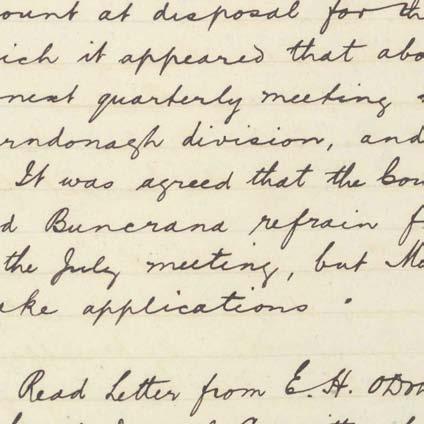 ount at disposal for th
ich it appeared that abo
next quarterly meeting
rndonagh division, and
It was agreed that the Cou
d Buncrana refrain f
the July meeting, but Mo
ake applications.
Read Letter from E. H. ODon